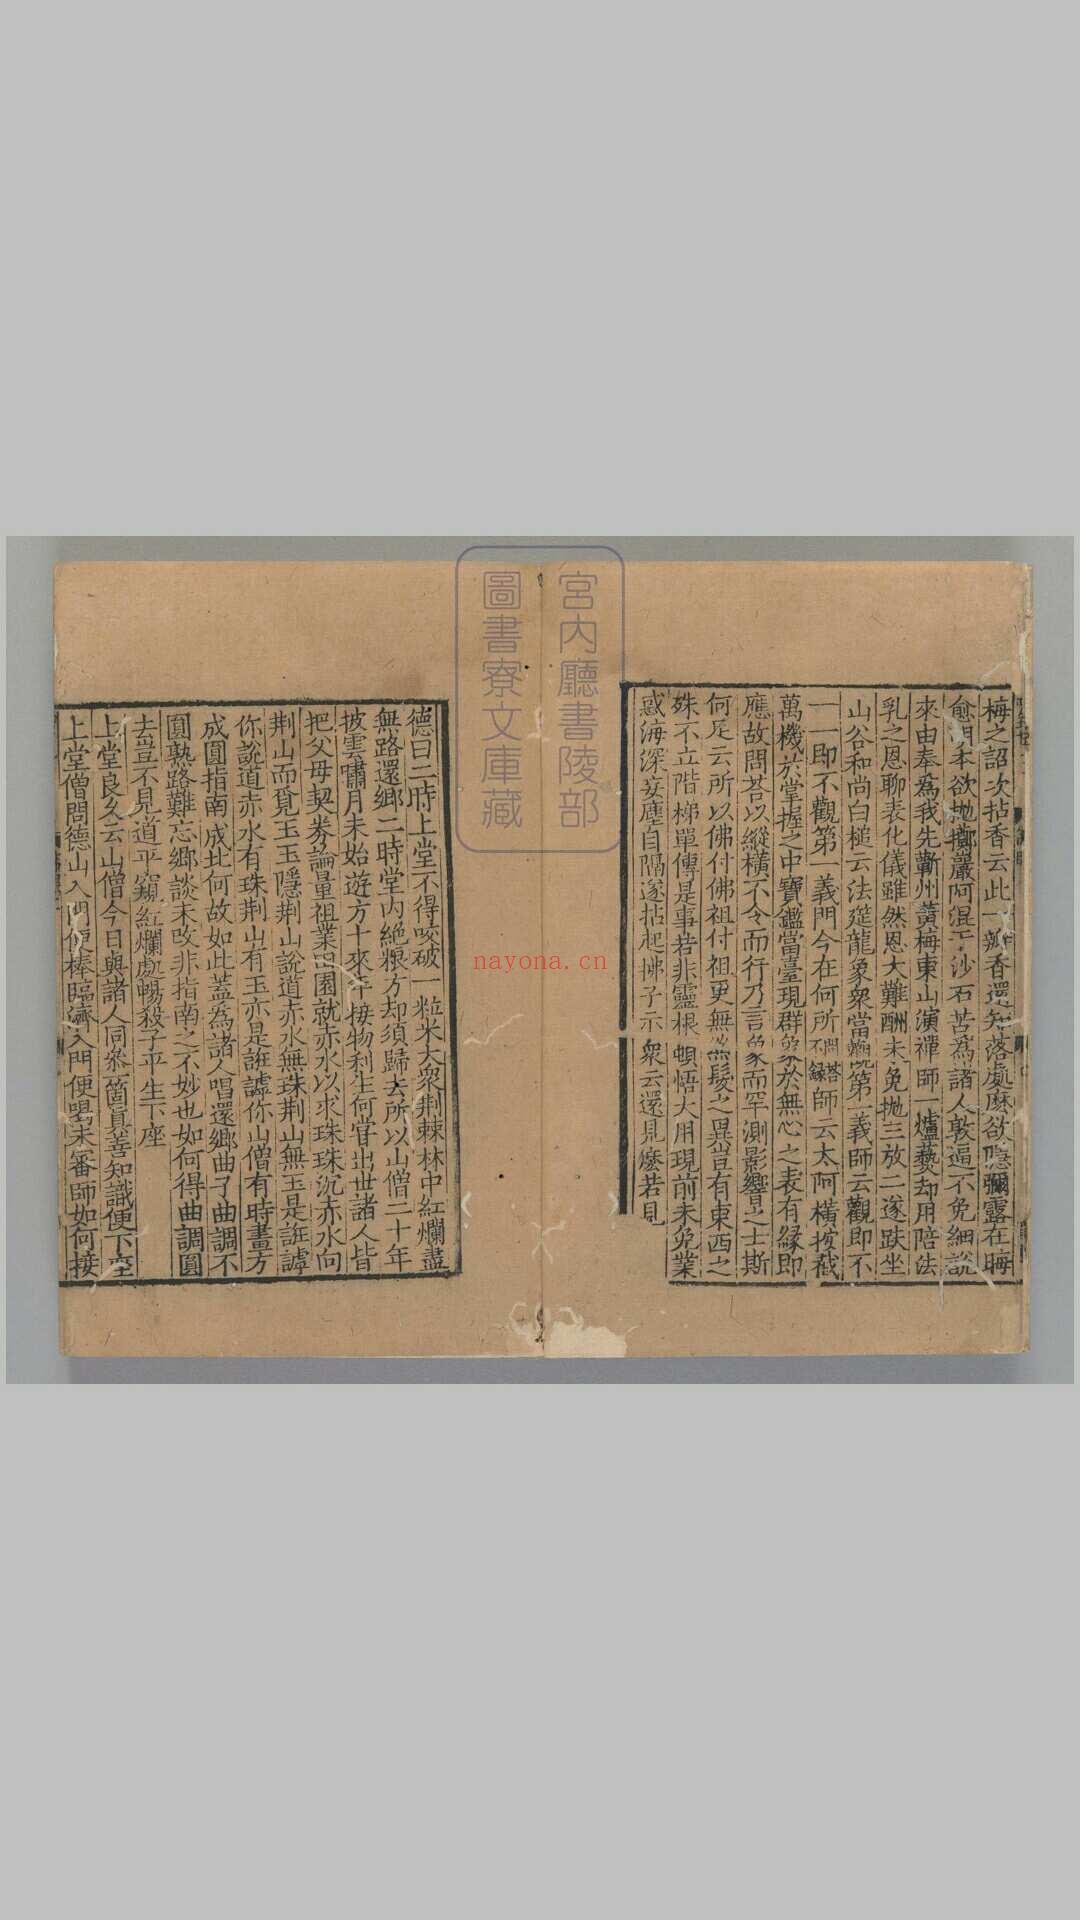 梅之詔次拈香云此一瓣香還知落處麽欲隱彌露在晦
愈明本欲抛擲巖阿混于沙石苦為諸人敦逼不免細說
來由奉為我先蘄州黃梅東山演禪師一爐爇却用陪法
乳之恩聊表化儀雖然恩大難酬未免抛三放二遂趺坐
山谷和尚白槌云法筵龍象衆當觀第一義師云觀即不
一一即不觀第一義門今在何所問荅不録師云太阿橫按截
萬機於掌握之中寶鑑當臺現群象於無心之表有縁即
應故問荅以縱橫不令而行乃言象而罕測影響之士斯
何足云所以佛付佛祖付祖更無絲髮之異豈有東西之
殊不立階梯單傳是事若非靈根頓悟大用現前未免業
惑海深妄塵自隔遂拈起拂子示衆云還見麽若見
德曰二時上堂不得咬破一粒米大衆荆棘林中紅爛盡
無路還鄉二時堂内絶粮方却須歸去所以山僧二十年
披雲嘯月未始遊方十來年接物利生何甞出世諸人皆
把父母契券論量祖業田園就赤水以求珠珠沉赤水向
荆山而覓玉玉隱荆山說道赤水無珠荆山無玉是誑謼
你說道赤水有珠荆山有玉亦是誑謼你山僧有時畫方
成圓指南成北何故如此蓋為諸人唱還鄉曲了曲調不
圓熟路難忘鄉談未改非指南之不妙也如何得曲調圓
去豈不見道平窺紅爛處暢殺子平生下座
上堂良久云山僧今日與諸人同叅箇眞善知識便下座
上堂僧問德山入門便棒臨濟入門便喝未審師如何接
宮内廳書陵部
圖書寮文庫藏
nayona.cn